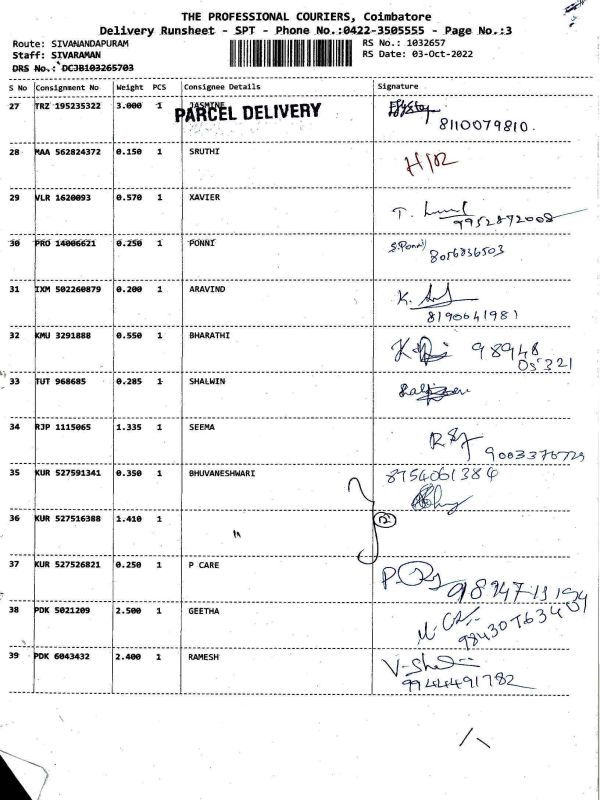 THE PROFESSIONAL COURIERS, Coimbatore
Delivery Runsheet - SPT - Phone No.:0422-3505555 - Page No.:3
Route: SIVANANDAPURAM RS No.: 1032657
Staff: SIVARAMAN RS Date: 03-Oct-2022
DRS No.: DC3B103265703
S No Consignment No Weight PCS Consignee Details Signature
27 TRZ 195235322 3.000 1 JASMINE
PARCEL DELIVERY
8110079810.
28 MAA 562824372 0.150 1 SRUTHI
H/R
29 VLR 1620093 0.570 1 XAVIER
T.
9952892008
30 PRO 14006621 0.250 1 PONNI S.Ponni
8056836503
31 IXM 502260879 0.200 1 ARAVIND
K.
8190641981
32 KMU 3291888 0.550 1 BHARATHI
98948
05321
33 TUT 968685 0.285 1 SHALWIN
34 RJP 1115065 1.335 1 SEEMA
9003376729
35 KUR 527591341 0.350 1 BHUVANESHWARI 8754061384
36 KUR 527516388 1.410 1
37 KUR 527526821 0.250 1 P CARE
38 PDK 5021209 2.500 1 GEETHA
39 PDK 6043432 2.400 1 RAMESH
9944491782